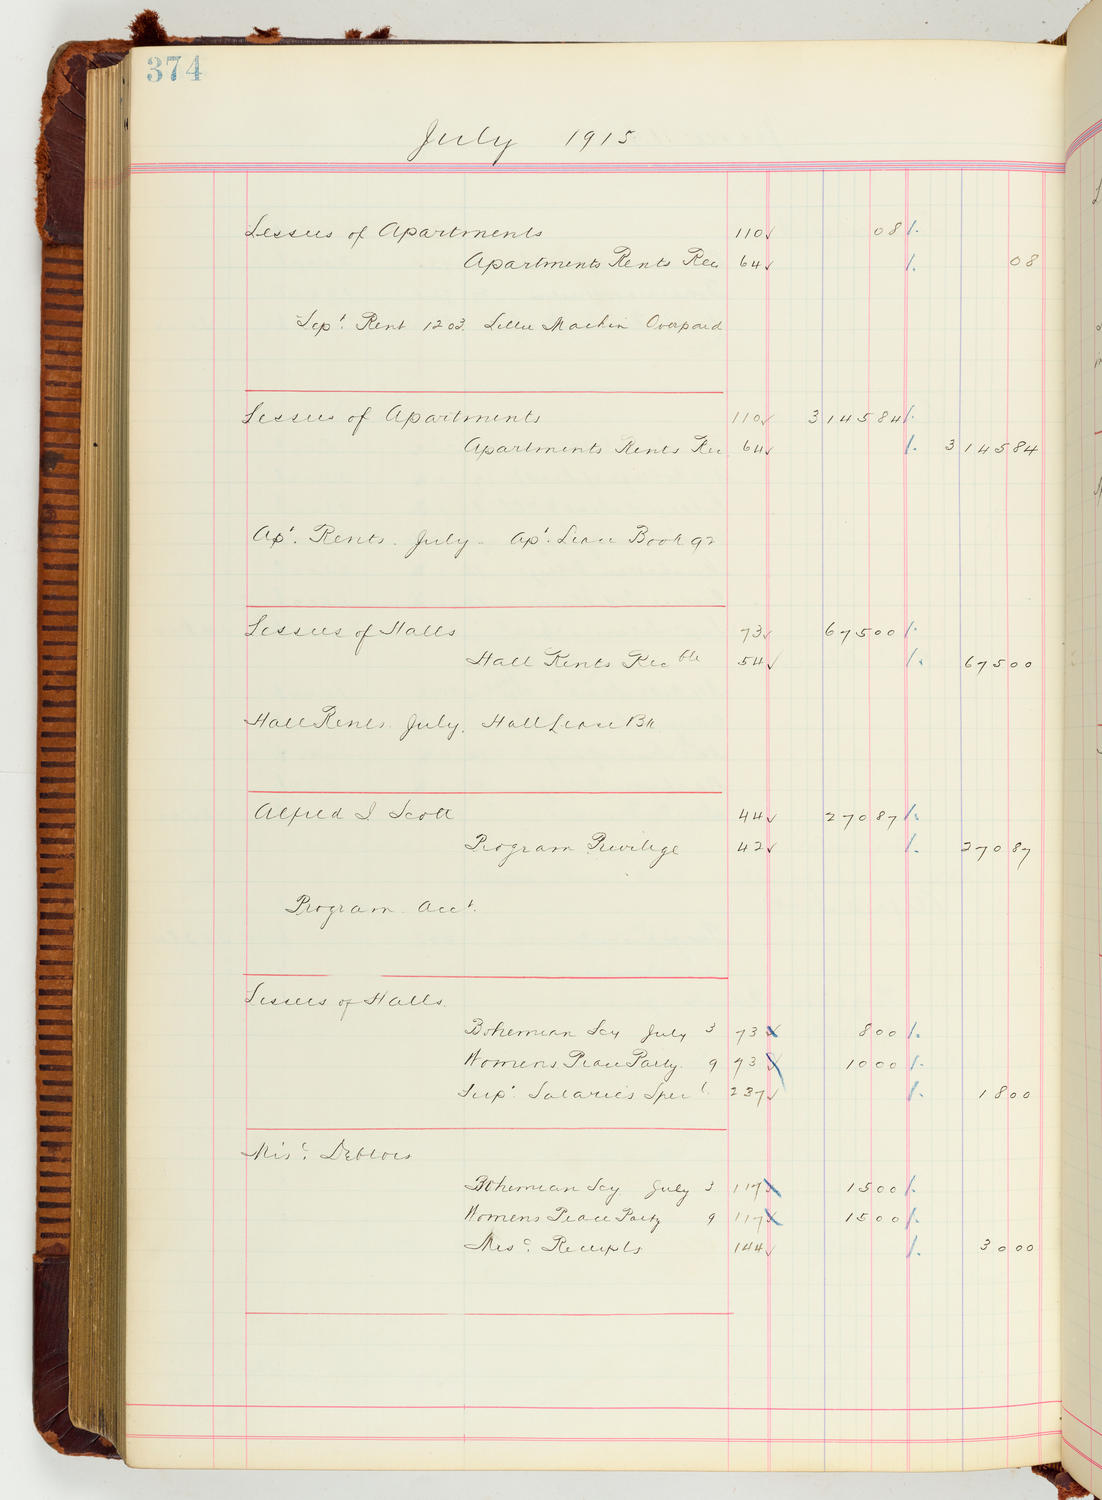 374
July 1915
Lessees of Apartments 110 08
Apartments Rents Rec 64 08
Sept. Rent 1203. Lillie Machin Overpaid
Lessees of Apartments 110 3 145 84
Apartments Rents Rec 64 3 145 84
Apt. Rents. July - Apt. Lease Book 92
Lessees of Halls 73 675 00
Hall Rents Recble 54 675 00
Hall Rents. July. Hall Lease Bk
Alfred S. Scott 44 270 87
Program Privilege 42 270 87
Program Acct.
Lessees of Halls.
Bohemian Scy July 3 73 8 00
Womens Peace Party. 9 73 10 00
Supt. Salaries Specl. 237 18 00
Misc. Debtors
Bohemian Scy. July 3 117 15 00
Womens Peace Party 9 117 15 00
Misc. Receipts 144 30 00